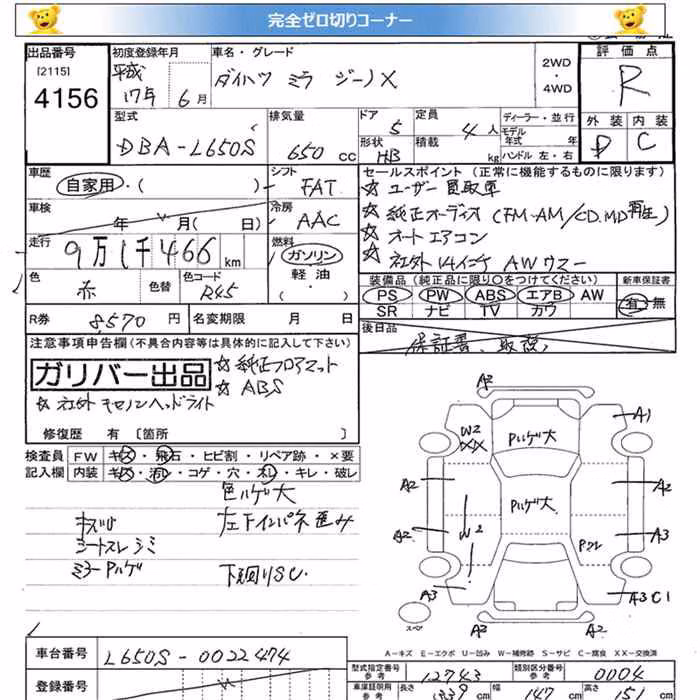 完全ゼロ切りコーナー
出品番号 初度登録年月 車名・グレード 評価点
[2115] 平成 2WD
4156 17年 6月 ダイハツ ミラ ジーノ X ・4WD R
型式 排気量 ドア 定員 ディーラー・並行 外装 内装
DBA-L650S 650 cc 5 4人 モデル年式 年 D C
形状 HB 積載 kg ハンドル 左・右
車歴 シフト セールスポイント(正常に機能するものに限ります)
自家用・( ) FAT ☆ ユーザー買取車
車検 冷房 ☆ 純正オーディオ(FM-AM/CD.MD再生)
年 月( 日) AAC ☆ オートエアコン
走行 燃料 ☆ 社外14インチAW
9万1千466 km ガソリン
軽油
・( )
色 色替 色コード 装備品(純正品に限り○をつけてください) 新車保証書
赤 R45 PS・PW・ABS・エアB・AW 有・無
SR・ナビ・TV・カワ・
R券 8,570円 名変期限 月 日 後日品
保証書、取説
注意事項申告欄(不具合内容等は具体的に記入して下さい)
ガリバー出品 ☆純正フロアマット
☆ABS
☆社外キセノンヘッドライト
修復歴 有〔箇所 〕
検査員 FW キズ・飛石・ヒビ割・リペア跡・×要
記入欄 内装 キズ・汚れ・コゲ・穴・スレ・キレ・破レ
色ハゲ大
キズU 左下インパネ歪み
シートスレシミ
ミラーPハゲ 下廻りSU.
A2
W2 Pハゲ大 A1
XX
A2 Pハゲ大 A2
A2 W2 A3
A3 A3C1
スペア A3 A2
A-キズ E-エクボ U-凹み W-補修跡 S-サビ C-腐食 XX-交換済
車台番号 L650S-0022474
登録番号
型式指定番号 参考 12743 類別区分番号 参考 0004
車庫証明用 参考 長さ 339 cm 幅 147 cm 高さ 151 cm